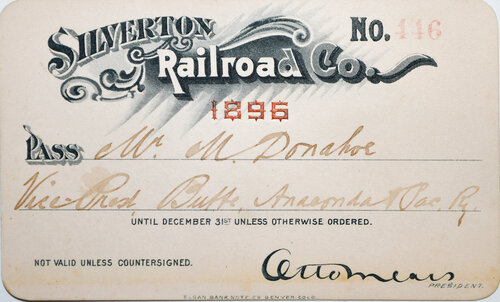 SILVERTON No. 446
Railroad Co.
1896
PASS Mr. M. Donahoe
Vice Prest Butte, Anaconda & Pac. Ry.
UNTIL DECEMBER 31ST UNLESS OTHERWISE ORDERED.
NOT VALID UNLESS COUNTERSIGNED. Otto Mears
PRESIDENT.
BANK NOTE CO DENVER COLO.